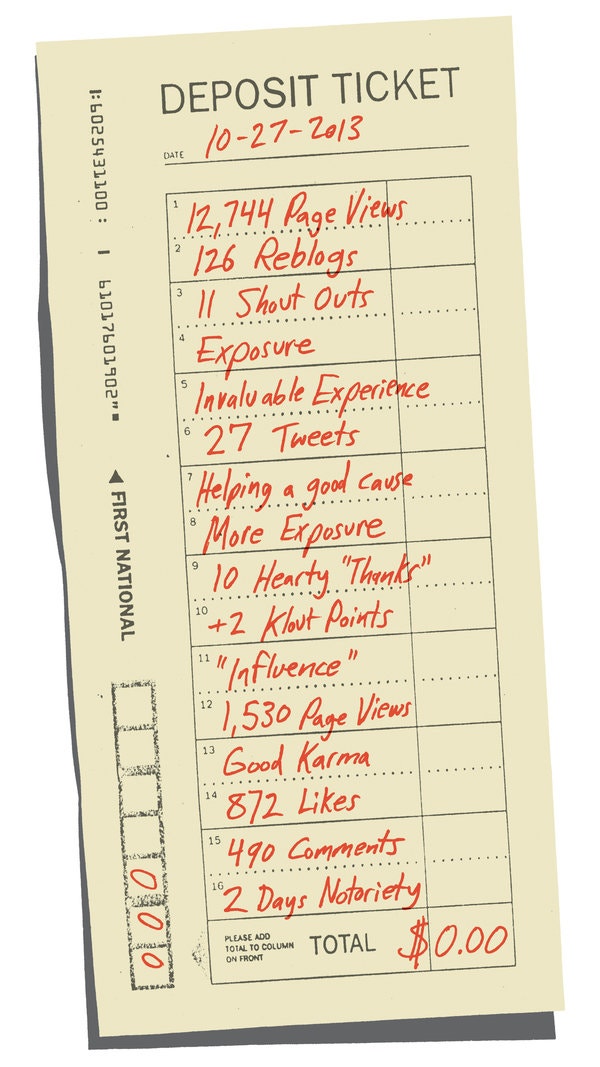 DEPOSIT TICKET
DATE 10-27-2013
1 12,744 Page Views
2 126 Reblogs
3 11 Shout Outs
4 Exposure
5 Invaluable Experience
6 27 Tweets
7 Helping a good cause
8 More Exposure
9 10 Hearty "Thanks"
10 +2 Klout Points
11 "Influence"
12 1,530 Page Views
13 Good Karma
14 872 Likes
15 490 Comments
16 2 Days Notoriety
PLEASE ADD
TOTAL TO COLUMN
ON FRONT
TOTAL $0.00
FIRST NATIONAL
0 0 0